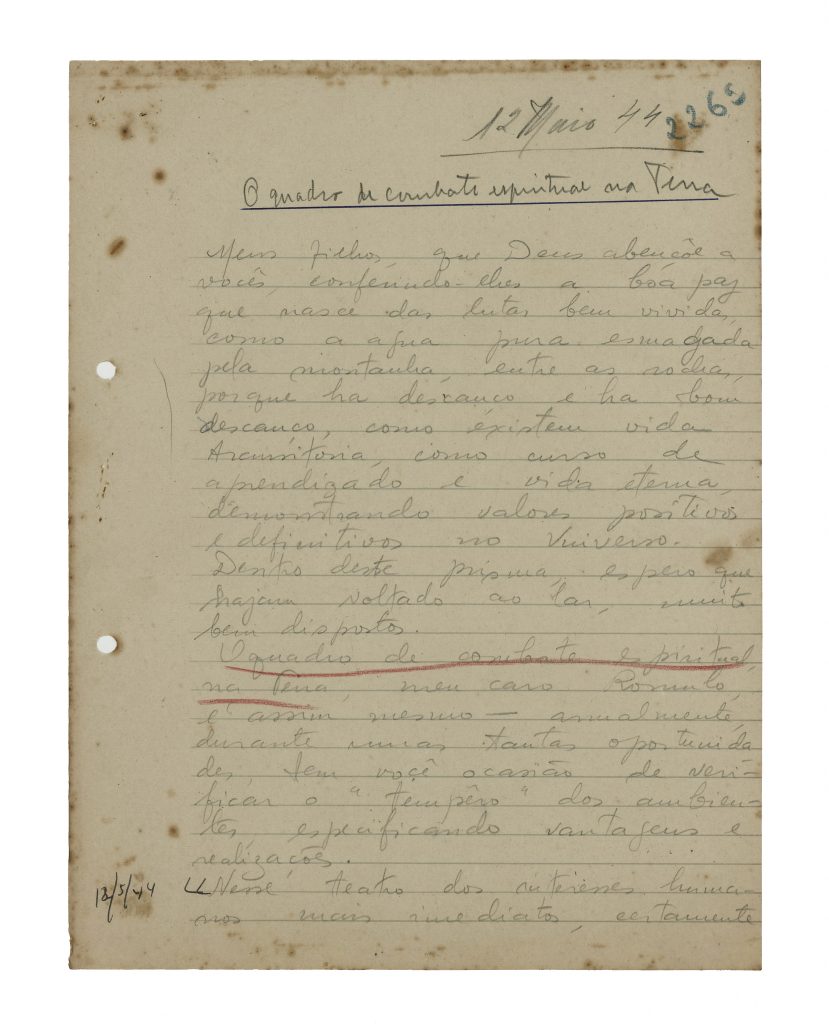 12 Maio 44
2265
O quadro de combate espiritual na Terra
Meus filhos, que Deus abençõe a
vocês, conferindo-lhes a bôa paz
que nasce das lutas bem vividas,
como a agua pura esmagada
pela montanha, entre as rochas,
porque ha descanço e ha bom
descanço, como existem vida
transitória, como curso de
aprendizado e vida eterna,
demonstrando valores positivos
e definitivos no Universo.
Dentro deste prisma, espero que
hajam voltado ao lar, muito
bem dispostos.
O quadro de combate espiritual,
na Terra, meu caro Romulo,
é assim mesmo — anualmente,
durante umas tantas oportunida
des, tem você ocasião de veri-
ficar o "tempêro" dos ambien-
tes, especificando vantagens e
realizações.
12/5/44 Nesse teatro dos interesses huma-
nos mais imediatos, certamente